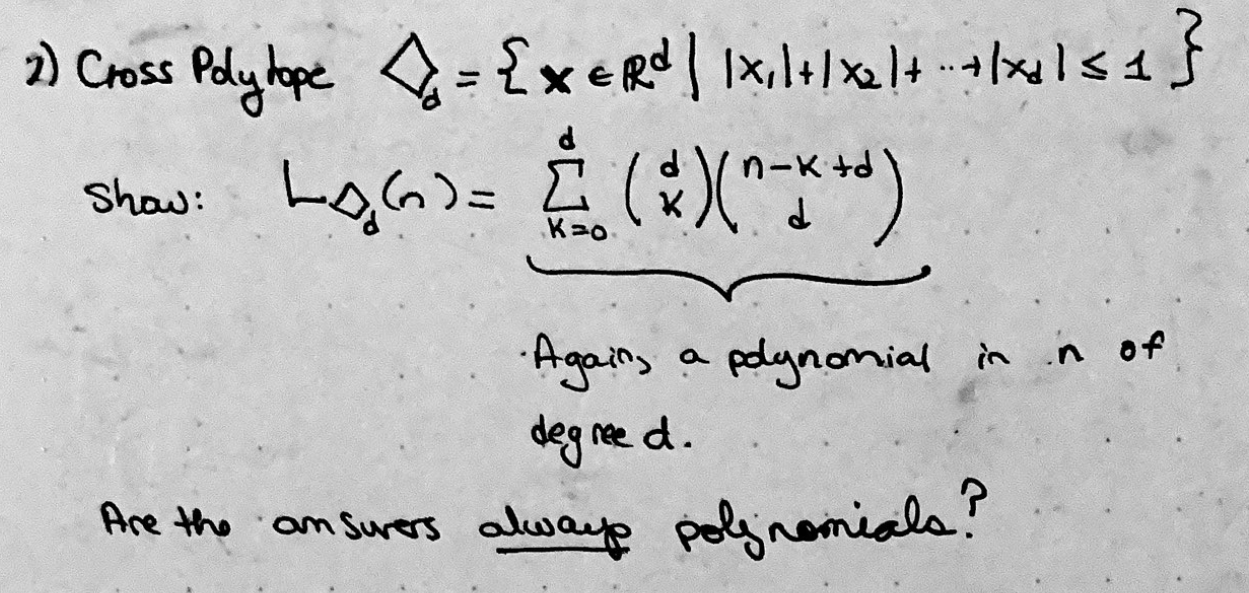 2) Cross Polytope ◇_d = { x ∈ ℝ^d | |x₁|+|x₂|+ ⋯ +|x_d| ≤ 1 }
Show: L_◇_d(n) = ∑_{k=0}^{d} (d choose k)(n-k+d choose d)
Again, a polynomial in n of
degree d.
Are the answers always polynomials?